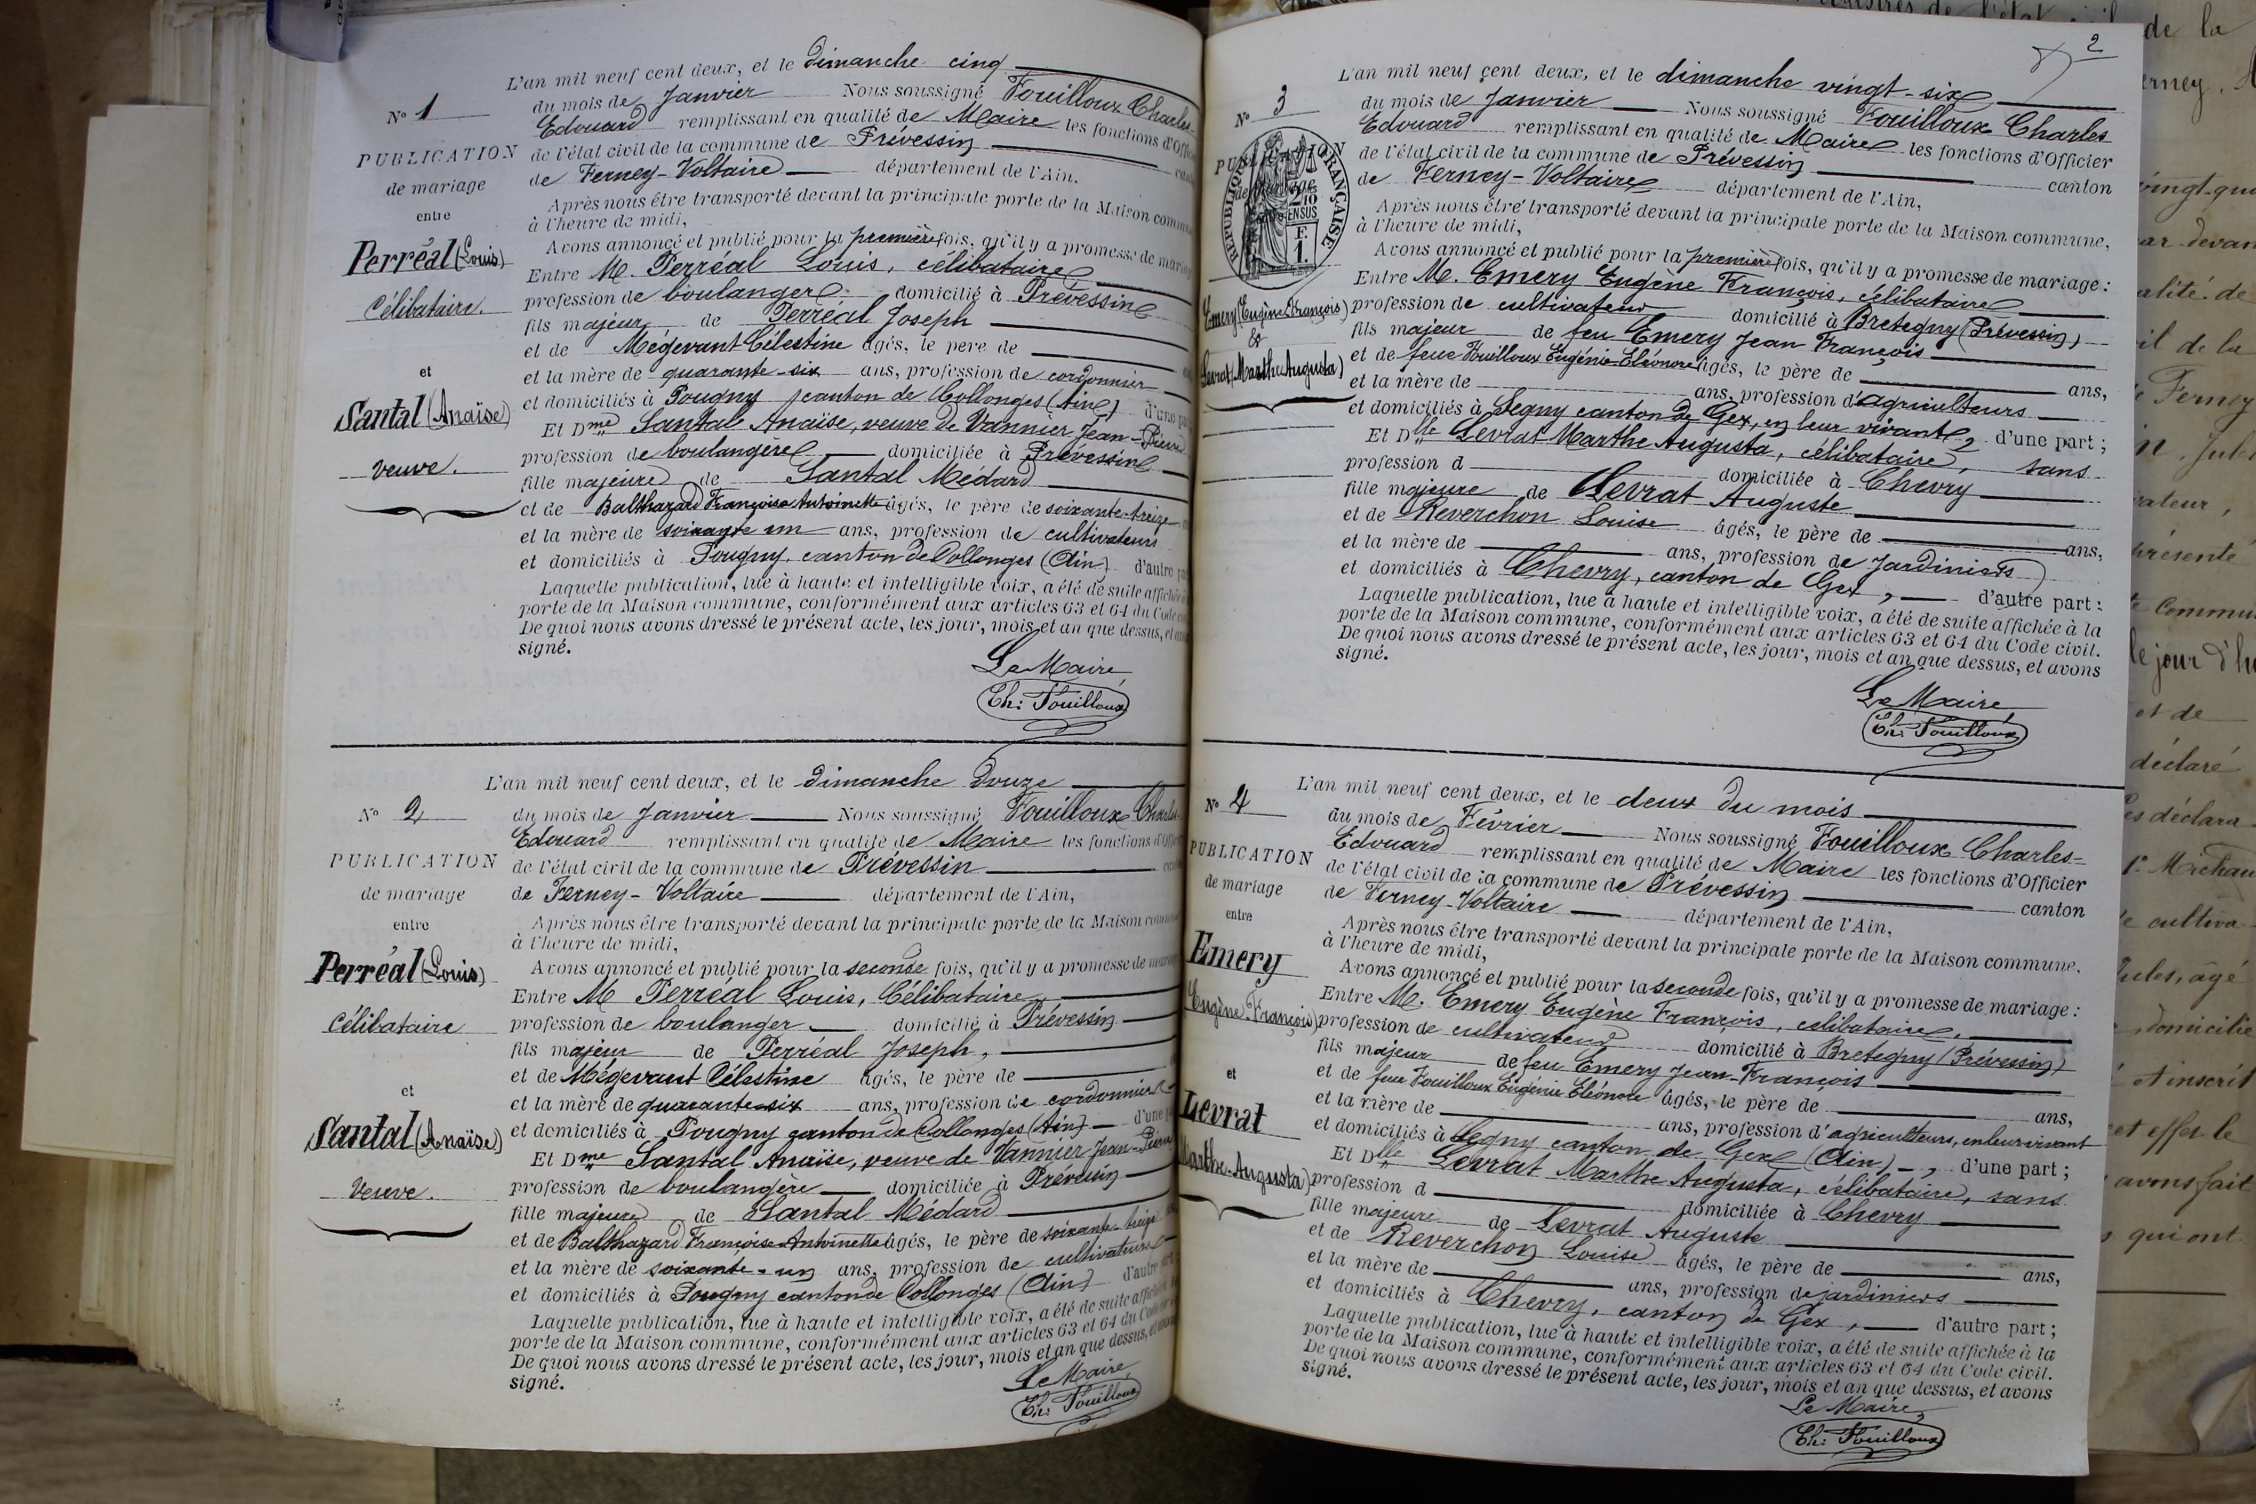 L'an mil neuf cent deux, et le dimanche cinq
N° 1
du mois de Janvier Nous soussigné Fouilloux Charles-
Edouard remplissant en qualité de Maire les fonctions d'Offic
PUBLICATION
de mariage
entre
Perréal (Louis)
Célibataire.
et
Santal (Anaïse)
veuve.
de l'état civil de la commune de Prévessin
de Ferney-Voltaire département de l'Ain.
Après nous être transporté devant la principale porte de la Maison commun
à l'heure de midi,
Avons annoncé et publié pour la première fois, qu'il y a promesse de maria
Entre M. Perréal Louis, célibataire
profession de boulanger domicilié à Prévessin
fils majeur de Perréal Joseph
et de Mégevant Célestine âgés, le père de
et la mère de quarante-six ans, profession de cordonnier
et domiciliés à Pougny canton de Collonges (Ain) d'une part
Et Dme Santal Anaïse, veuve de Vannier Jean-Pierre
profession de boulangère domiciliée à Prévessin
fille majeure de Santal Médard
et de Balthazard Françoise Antoinette âgés, le père de soixante-treize
et la mère de soixante un ans, profession de cultivateurs
et domiciliés à Pougny, canton de Collonges (Ain) d'autre par
Laquelle publication, lue à haute et intelligible voix, a été de suite affichée
porte de la Maison commune, conformément aux articles 63 et 64 du Code
De quoi nous avons dressé le présent acte, les jour, mois et an que dessus, et
signé.
Le Maire,
Ch: Fouilloux
L'an mil neuf cent deux, et le dimanche douze
N° 2
PUBLICATION
de mariage
entre
Perréal (Louis)
Célibataire
et
Santal (Anaïse)
Veuve.
du mois de Janvier Nous soussigné Fouilloux Charles-
Edouard remplissant en qualité de Maire les fonctions d'Offi
de l'état civil de la commune de Prévessin
de Ferney-Voltaire département de l'Ain,
Après nous être transporté devant la principale porte de la Maison commu
à l'heure de midi,
Avons annoncé et publié pour la seconde fois, qu'il y a promesse de maria
Entre M Perréal Louis, Célibataire
profession de boulanger domicilié à Prévessin
fils majeur de Perréal Joseph,
et de Mégevant Célestine âgés, le père de
et la mère de quarante-six ans, profession de cordonnier
et domiciliés à Pougny canton de Collonges (Ain) d'une
Et Dme Santal Anaïse, veuve de Vannier Jean-Pierre
profession de boulangère domiciliée à Prévessin
fille majeure de Santal Médard
et de Balthazard Françoise-Antoinette âgés, le père de soixante-treize
et la mère de soixante-un ans, profession de cultivateurs
et domiciliés à Pougny canton de Collonges (Ain) d'autre
Laquelle publication, lue à haute et intelligible voix, a été de suite affichée
porte de la Maison commune, conformément aux articles 63 et 64 du Code
De quoi nous avons dressé le présent acte, les jour, mois et an que dessus,
signé.
Le Maire,
Ch: Fouilloux
2
L'an mil neuf cent deux, et le dimanche vingt-six
N° 3
PUBLICATION
de mariage
RÉPUBLIQUE FRANÇAISE
2/10
EN SUS
F.
1.
Emery (Eugène-François)
&
Levrat (Marthe Augusta)
du mois de Janvier Nous soussigné Fouilloux Charles
Edouard remplissant en qualité de Maire les fonctions d'Officier
de l'état civil de la commune de Prévessin canton
de Ferney-Voltaire département de l'Ain,
Après nous être transporté devant la principale porte de la Maison commune,
à l'heure de midi,
Avons annoncé et publié pour la première fois, qu'il y a promesse de mariage:
Entre M. Emery Eugène François, célibataire
profession de cultivateur domicilié à Bretegny (Prévessin)
fils majeur de feu Emery Jean François
et de feue Fouilloux Eugénie-Eléonore âgés, le père de ans,
et la mère de ans, profession d'agriculteurs
et domiciliés à Segny canton de Gex, en leur vivant, d'une part;
Et Dlle Levrat Marthe Augusta, célibataire, sans
profession d domiciliée à Chevry
fille majeure de Levrat Auguste
et de Reverchon Louise âgés, le père de ans,
et la mère de ans, profession de Jardiniers
et domiciliés à Chevry, canton de Gex, d'autre part:
Laquelle publication, lue à haute et intelligible voix, a été de suite affichée à la
porte de la Maison commune, conformément aux articles 63 et 64 du Code civil.
De quoi nous avons dressé le présent acte, les jour, mois et an que dessus, et avons
signé.
Le Maire,
Ch: Fouilloux
L'an mil neuf cent deux, et le deux du mois
N° 4
PUBLICATION
de mariage
entre
Emery
(Eugène-François)
et
Levrat
(Marthe-Augusta)
du mois de Février Nous soussigné Fouilloux Charles-
Edouard remplissant en qualité de Maire les fonctions d'Officier
de l'état civil de la commune de Prévessin canton
de Ferney-Voltaire département de l'Ain,
Après nous être transporté devant la principale porte de la Maison commune.
à l'heure de midi,
Avons annoncé et publié pour la seconde fois, qu'il y a promesse de mariage:
Entre M. Emery Eugène François, célibataire,
profession de cultivateur domicilié à Bretegny (Prévessin)
fils majeur de feu Emery Jean-François
et de feue Fouilloux Eugénie Eléonore âgés, le père de ans,
et la mère de ans, profession d'agriculteurs, en leur vivant
et domiciliés à Segny canton de Gex (Ain), d'une part;
Et Dlle Levrat Marthe Augusta, célibataire, sans
profession d domiciliée à Chevry
fille majeure de Levrat Auguste
et de Reverchon Louise âgés, le père de ans,
et la mère de ans, profession de jardiniers
et domiciliés à Chevry, canton de Gex, d'autre part;
Laquelle publication, lue à haute et intelligible voix, a été de suite affichée à la
porte de la Maison commune, conformément aux articles 63 et 64 du Code civil.
De quoi nous avons dressé le présent acte, les jour, mois et an que dessus, et avons
signé.
Le Maire,
Ch: Fouilloux
de la
erney.
vingt-qua
ar-devan
alité de
il de la
Ferney
Jul
ateur,
présenté
Commu
le jour d'hu
et de
déclaré
es déclara
Michau
cultiva
Jules, âgé
domicilié
et inscrit
et effet le
avons fait
qui ont